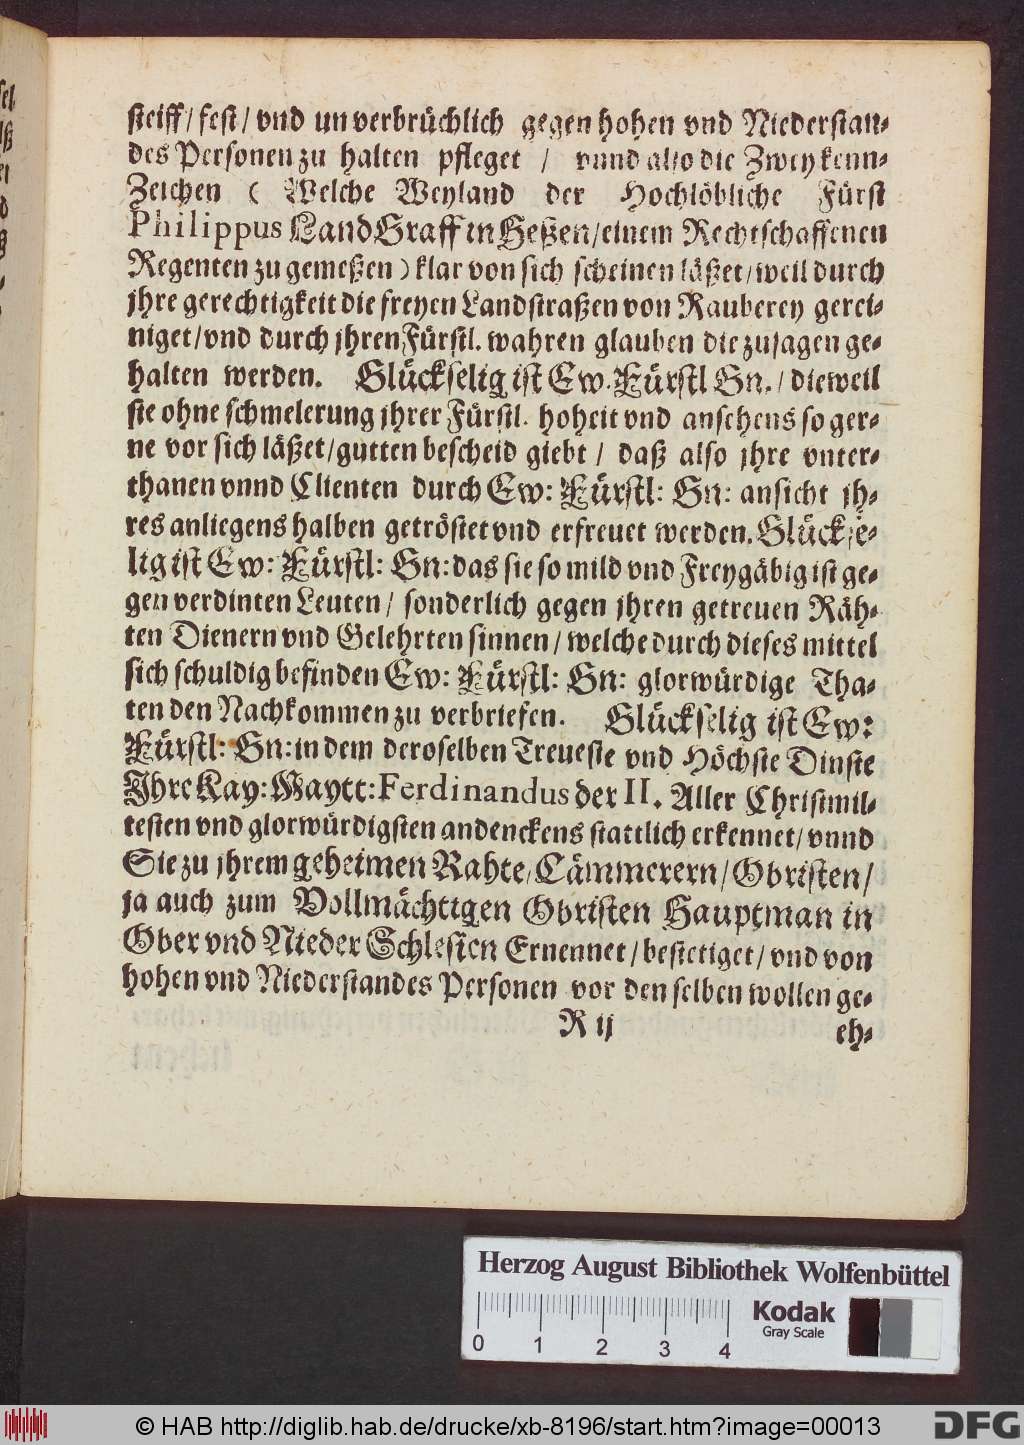 steiff/ fest/ vnd unverbrüchlich gegen hohen vnd Niederstan-
des Personen zu halten pfleget / vnnd also die Zwey kenn-
Zeichen ( Welche Weyland der Hochlöbliche Fürst
Philippus LandGraff in Heßen/einem Rechtschaffenen
Regenten zu gemeßen ) klar von sich scheinen läßet/weil durch
jhre gerechtigkeit die freyen Landstraßen von Rauberey gerei-
niget/vnd durch jhren Fürstl. wahren glauben die zusagen ge-
halten werden. Glückselig ist Ew. Fürstl Gn./ dieweil
sie ohne schmelerung jhrer Fürstl. hoheit vnd ansehens so ger-
ne vor sich läßet/gutten bescheid giebt / daß also jhre vnter-
thanen vnnd Clienten durch Ew: Fürstl: Gn: ansicht jh-
res anliegens halben getröstet vnd erfreuet werden. Glückse-
lig ist Ew: Fürstl: Gn: das sie so mild vnd Freygäbig ist ge-
gen verdinten Leuten/ sonderlich gegen jhren getreuen Räh-
ten Dienern vnd Gelehrten sinnen/ welche durch dieses mittel
sich schuldig befinden Ew: Fürstl: Gn: glorwürdige Tha-
ten den Nachkommen zu verbriefen. Glückselig ist Ew:
Fürstl: Gn: in dem deroselben Treueste vnd Höchste Dinste
Ihre Kay: Maytt: Ferdinandus der II. Aller Christmil-
testen vnd glorwürdigsten andenckens stattlich erkennet/ vnnd
Sie zu jhrem geheimen Rahte, Cämmerern/ Obristen/
ja auch zum Vollmächtigen Obristen Hauptman in
Ober vnd Nieder Schlesien Ernennet/ bestetiget/ vnd von
hohen vnd Niederstandes Personen vor denselben wollen ge-
R ij eh-
Herzog August Bibliothek Wolfenbüttel
0 1 2 3 4
Kodak
Gray Scale
© HAB http://diglib.hab.de/drucke/xb-8196/start.htm?image=00013
DFG